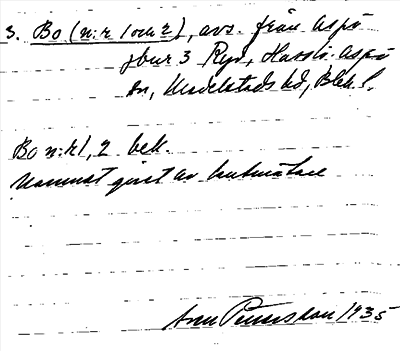 3. Bo (n:r 1 och 2), avs. från Aspö
jbur 3 Ryd, Hasslö-Aspö
sn, Medelstads hd, Blek. l.
Bo n:r 1, 2 bek.
Namnet givet av lantmätare
Petersson 1935